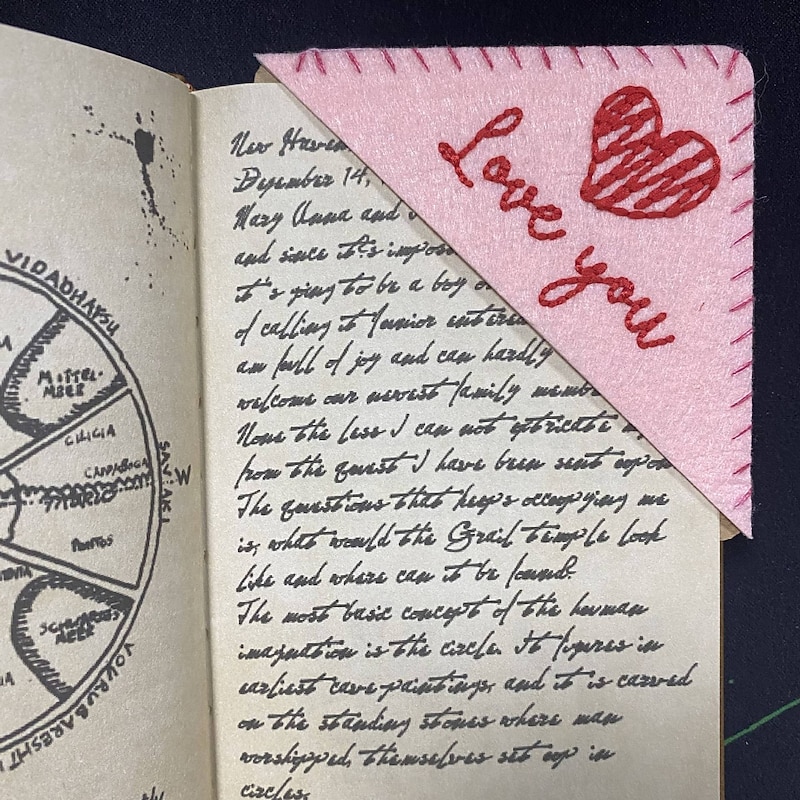 VIDADHAFSU
MITTEL-
MEER
CILICIA
W
PONTOS
SCHWARZES
MEER
VOURUBARESHTI
New Haven
Desember 14,
Mary Anna and
and since it's impos
it's going to be a boy o
of calling it Junior enterea
am full of joy and can hardly
welcome our newest family membe
None the less I can not extricate
from the quest I have been sent upon
The questions that keeps occupying me
is, what would the Grail temple look
like and where can it be found?
The most basic concept of the human
imagination is the circle. It figures in
earliest cave-paintings, and it is carved
on the standing stones where man
worshipped, themselves set up in
circles.
Love you